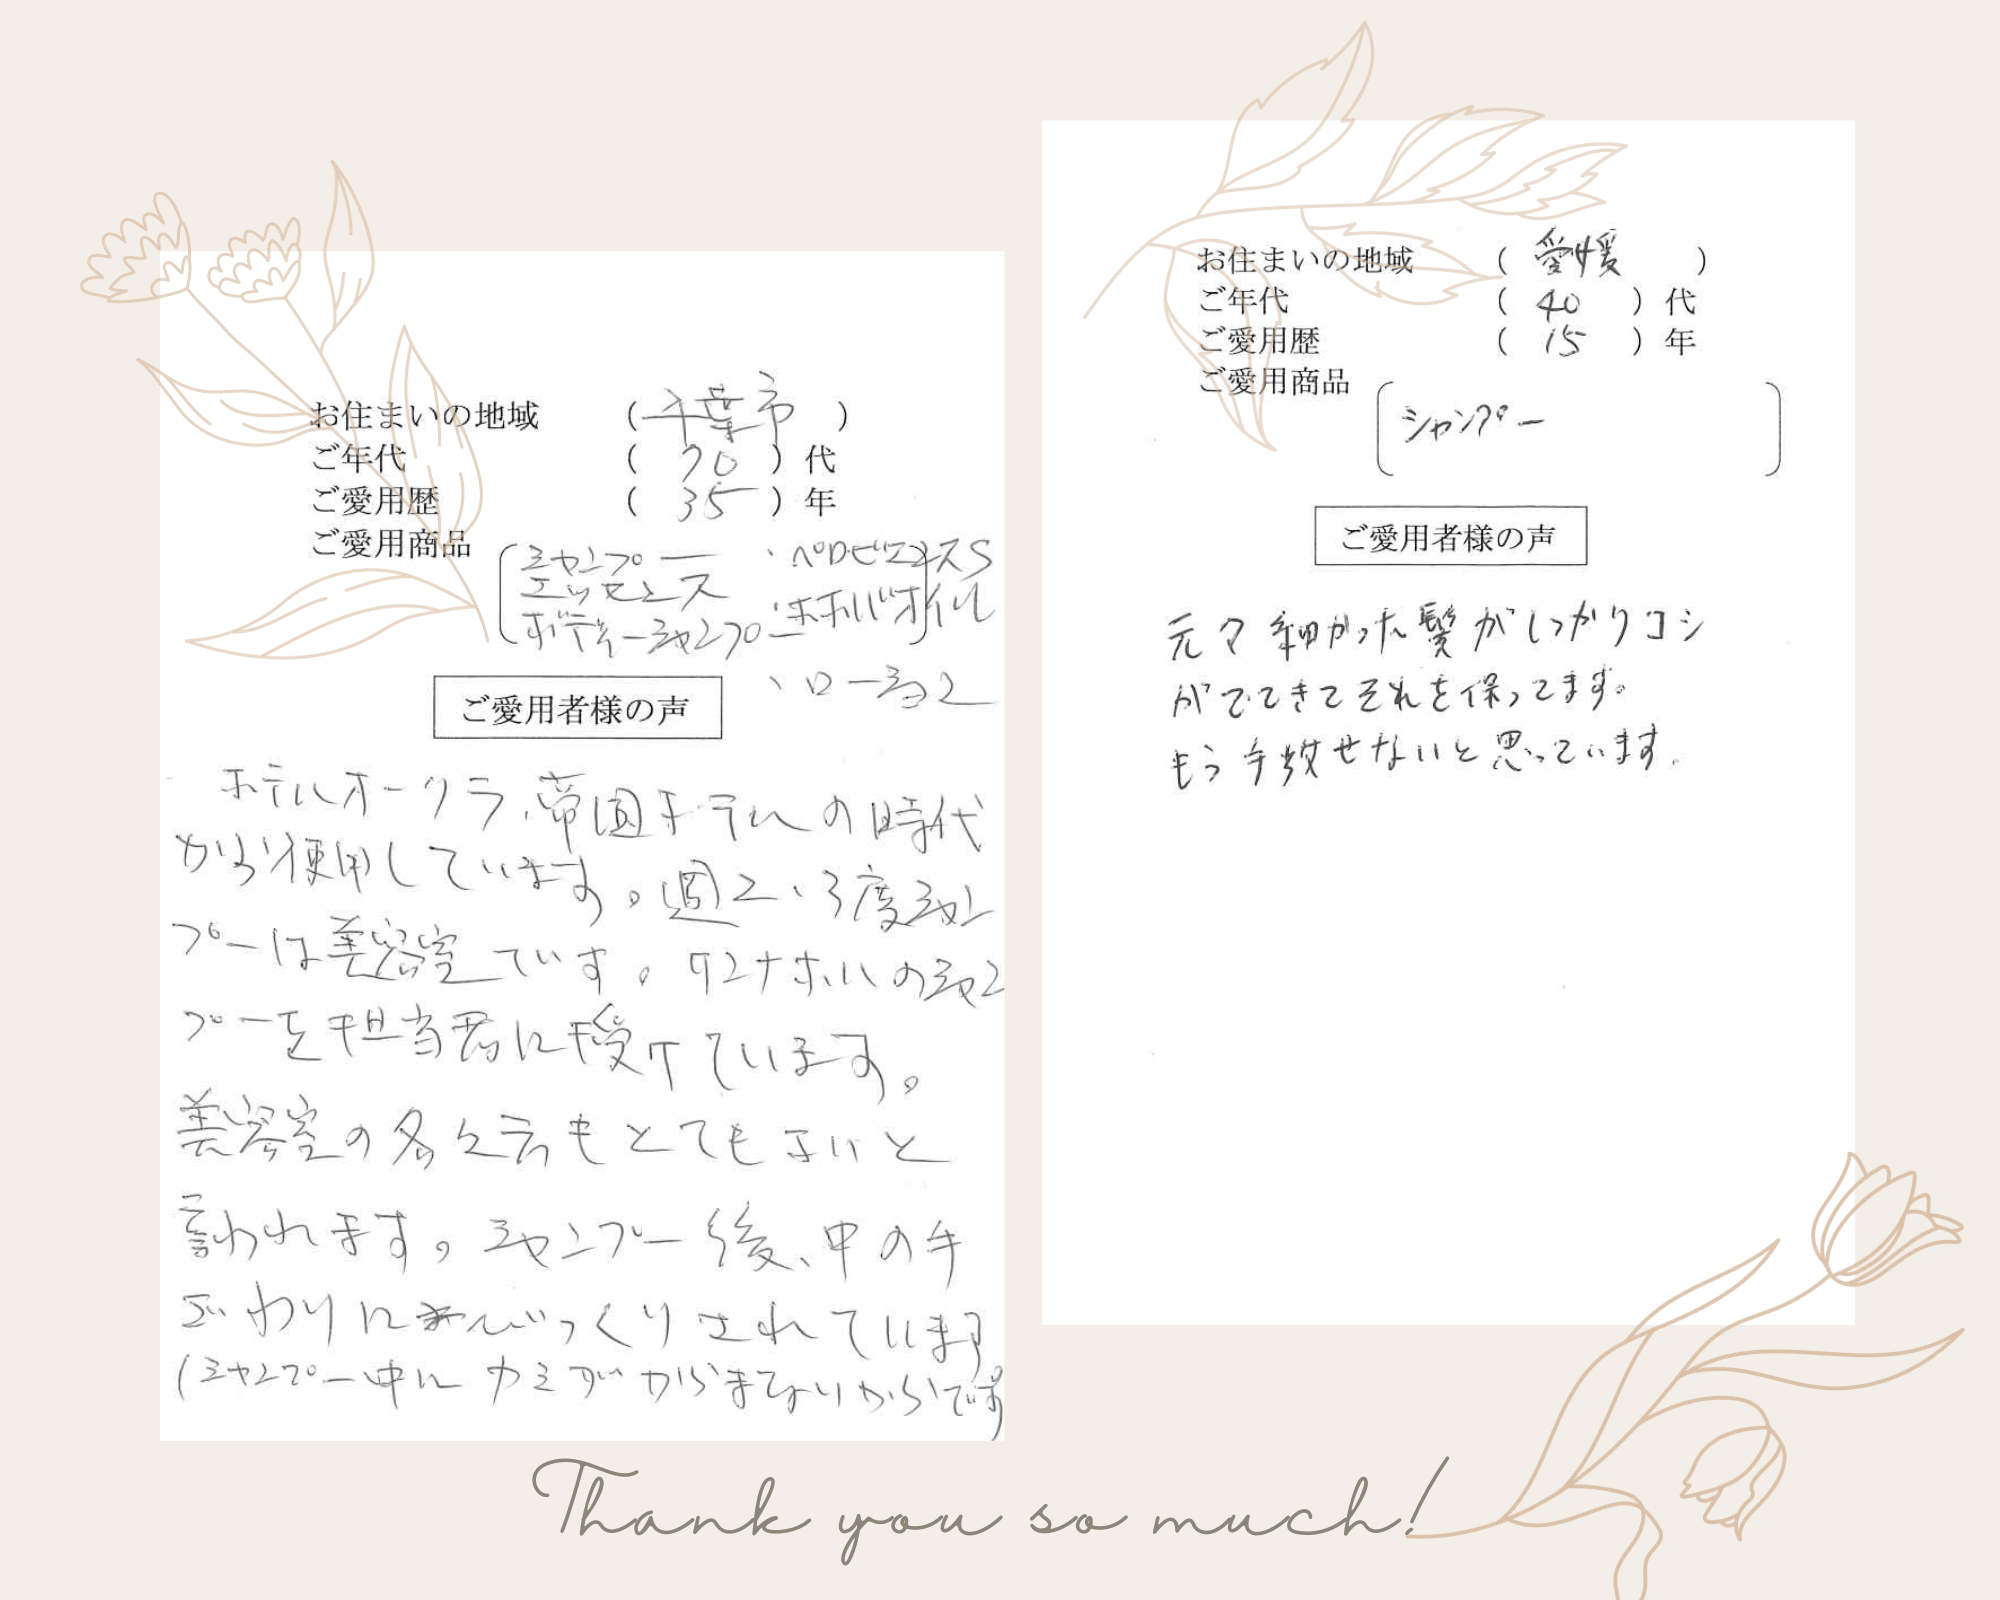 お住まいの地域 (千葉市)
ご年代 (70)代
ご愛用歴 (35)年
ご愛用商品
シャンプー ・ペロビエキスS
エッセンス
・ホホバオイル
ボディーシャンプー
・ローション
ご愛用者様の声
ホテルオークラ、帝国ホテルの時代
から使用しています。週2、3度シャン
プーは美容室です。サンナホルのシャン
プーを担当者に授けています。
美容室の名々方もとてもよいと
言われます。シャンプー後、中の手
ざわりにびっくりされています
(シャンプー中にカミがからまないからです
お住まいの地域 (愛媛)
ご年代 (40)代
ご愛用歴 (15)年
ご愛用商品
シャンプー
ご愛用者様の声
元々細かった髪がしっかりコシ
がでてきてそれを保ってます。
もう手放せないと思っています。
Thank you so much!